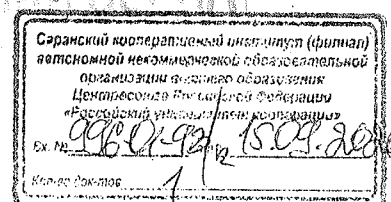 Саранский кооперативный институт (филиал)
автономной некоммерческой образовательной
организации высшего образования
Центросоюза Российской Федерации
«Российский университет кооперации»
Вх. № 15.09.
Кол-во док-тов 1